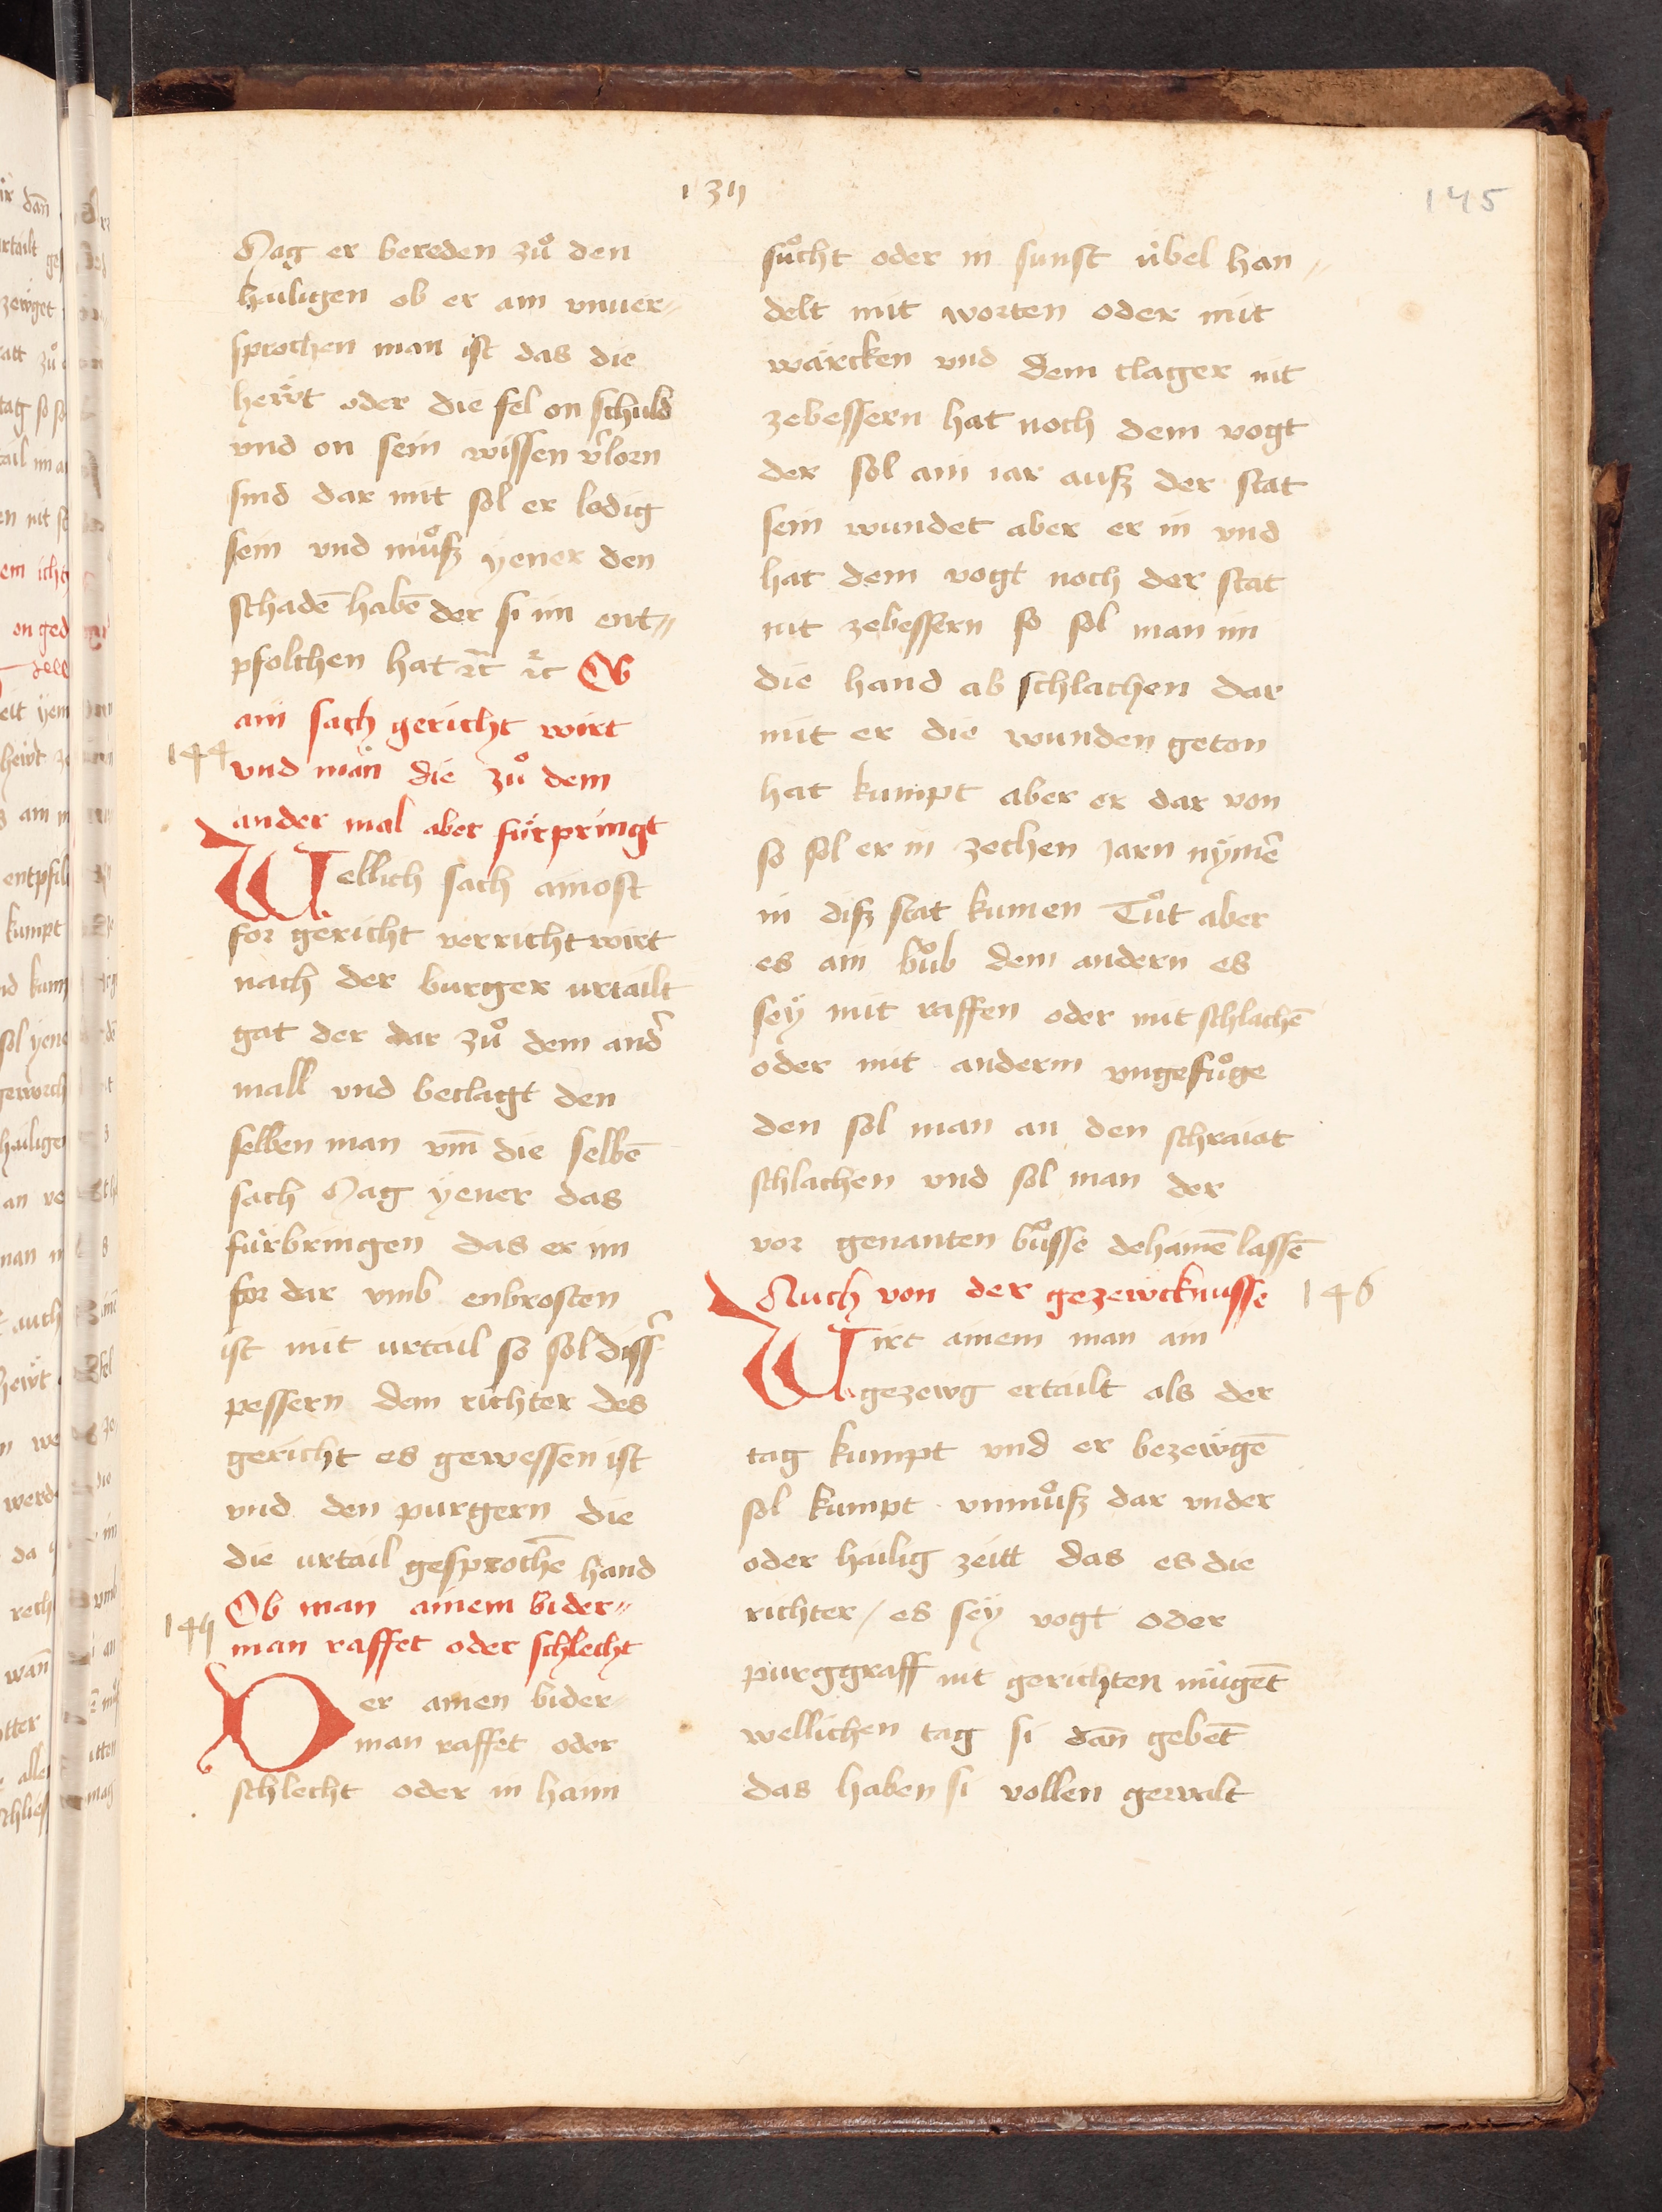 135
145
Mag er bereden zuͦ den
hailigen ob er ain vnuer⸗
sprochen man ist das die
hewͤt oder die fel on schuld
vnd on sein wissen v̉lorn
sind dar mit sol er ledig
sein vnd muͦsz yener den
schadē habē der si im ent⸗
pfolchen hat ꝛc̄ ꝛc Ob
ain sach gericht wirt
144
vnd man die zuͦ dem
ander mal aber fürpringt
Wellich sach ainost
for gericht verricht wirt
nach der burger urtailt
gat der dar zuͦ dem and̉
mall vnd beclagt den
selben man vm̄ die selbē
sach Mag yener das
fürbringen das er im
for dar vmb enbrosten
ist mit urtail so sol diss̉
pessern dem richter des
gericht es gewessen ist
vnd den purgern die
die urtail gesprochē hand
Ob man ainem bider⸗
145
man raffet oder schlecht
Der ainen bider⸗
man raffet oder
schlecht oder in haim
suͦcht oder in sunst übel han⸗
delt mit worten oder mit
wärcken vnd dem clager nit
zebessern hat noch dem vogt
der sol ain iar ausz der stat
sein wundet aber er in vnd
hat dem vogt noch der stat
nit zebessern so sol man im
die hand ab schlachen dar
mit er die wunden geton
hat kumpt aber er dar von
so sol er in zechen jarn nymē
in disz stat kumen Tuͦt aber
es ain buͦb dem andern es
seÿ mit raffen oder mit schlachē
oder mit anderm vngefuͦge
den sol man an den schraiat
schlachen vnd sol man der
vor genanten buͦsse dehainē lassē
Auch von der gezewcknusse
146
Wirt ainem man ain
gezewg ertailt als der
tag kumpt vnd er bezewgē
sol kumpt vnmuͦsz dar vnder
oder hailig zeitt das es die
richter / es seÿ vogt oder
purggraff nit gerichten mügēt
wellichen tag si dan̄ gebēt
das haben si vollen gewalt